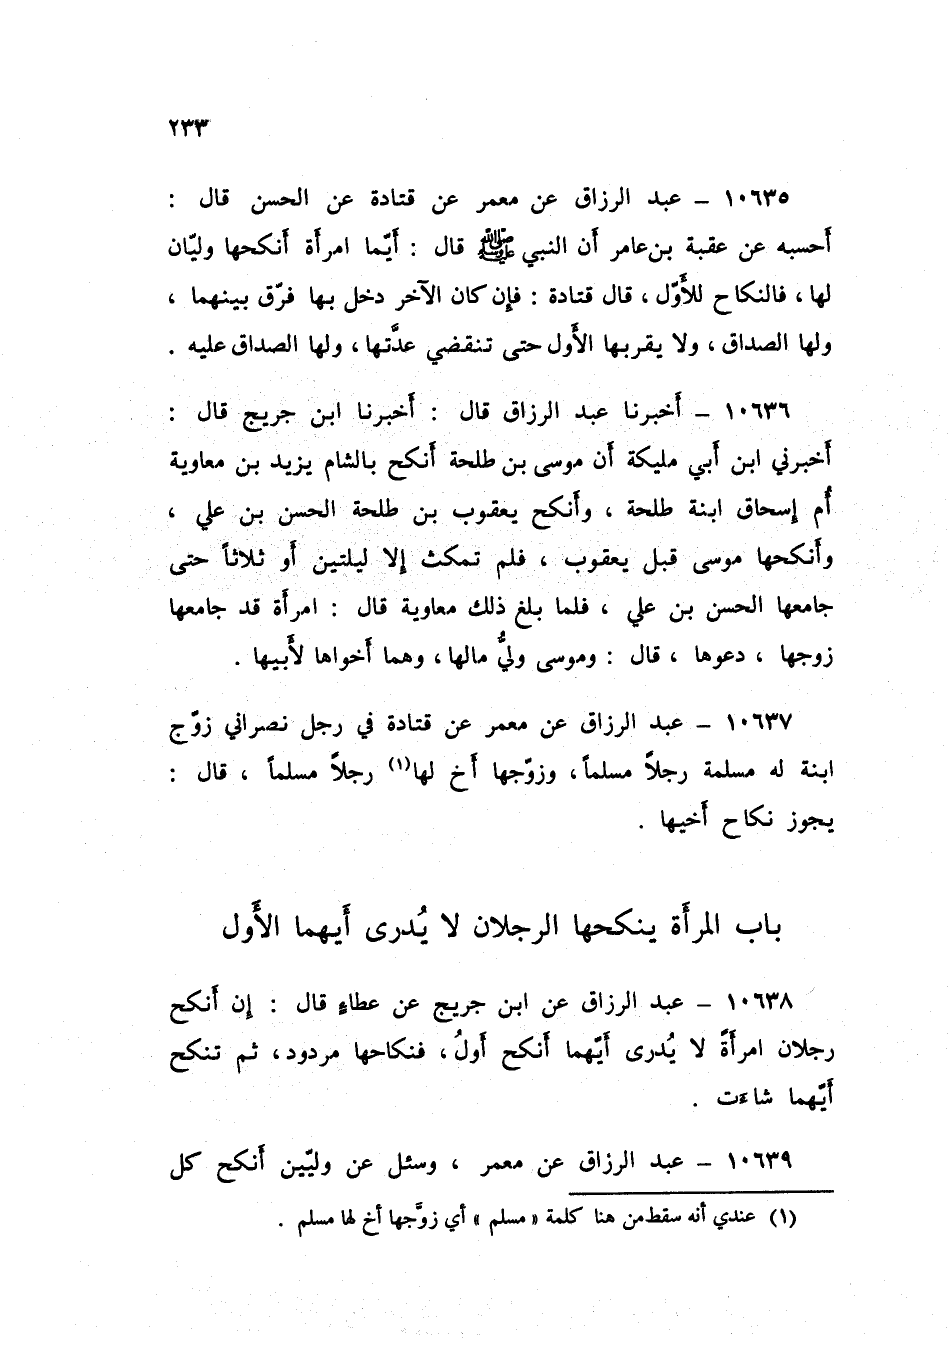 ٢٣٣
١٠٦٣٥ – عبد الرزاق عن معمر عن قتادة عن الحسن قال :
أحسبه عن عقبة بن عامر أن النبي ﷺ قال : أَيّما امرأة أَنكحها وليّان
لها ، فالنكاح للأَوّل ، قال قتادة : فإن كان الآخر دخل بها فرّق بينهما ،
ولها الصداق ، ولا يقربها الأَول حتى تنقضي عدَّتها ، ولها الصداق عليه .
١٠٦٣٦ – أَخبرنا عبد الرزاق قال : أَخبرنا ابن جريج قال :
أَخبرني ابن أَبي مليكة أَن موسى بن طلحة أَنكح بالشام يزيد بن معاوية
أُم إسحاق ابنة طلحة ، وأَنكح يعقوب بن طلحة الحسن بن علي ،
وأَنكحها موسى قبل يعقوب ، فلم تمكث إلا ليلتين أَو ثلاثاً حتى
جامعها الحسن بن علي ، فلما بلغ ذلك معاوية قال : امرأَة قد جامعها
زوجها ، دعوها ، قال : وموسى وليُّ مالها ، وهما أَخواها لأَبيها .
١٠٦٣٧ – عبد الرزاق عن معمر عن قتادة في رجل نصراني زوّج
ابنة له مسلمة رجلاً مسلماً ، وزوّجها أَخ لها(١) رجلاً مسلماً ، قال :
يجوز نكاح أَخيها .
باب المرأَة ينكحها الرجلان لا يُدرى أَيهما الأَول
١٠٦٣٨ – عبد الرزاق عن ابن جريج عن عطاءٍ قال : إن أَنكح
رجلان امرأَةً لا يُدرى أَيّهما أَنكح أَولُ ، فنكاحها مردود ، ثم تنكح
أَيّهما شاءت .
١٠٦٣٩ – عبد الرزاق عن معمر ، وسئل عن وليّين أَنكح كل
(١) عندي أنه سقط من هنا كلمة « مسلم » أي زوَّجها أخ لها مسلم .